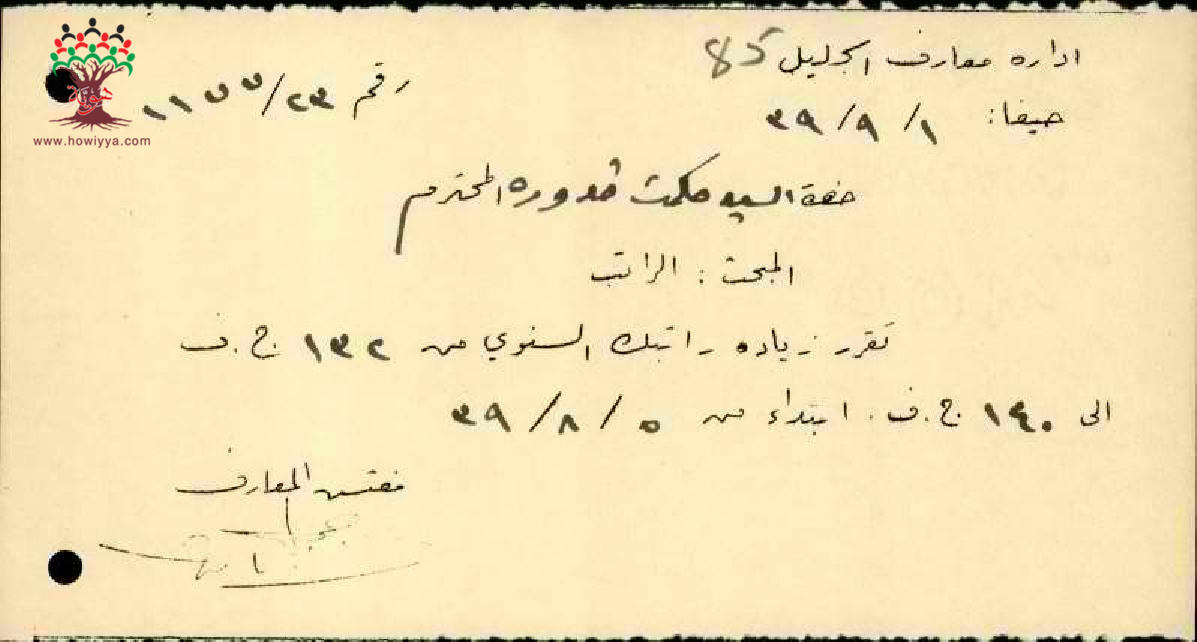 اداره معارف الجليل 85
رقم ٢٣/
حيفا: ١/ ٩/ ٣٩
حضرة السيد حكمت قدوره المحترم
المبحث: الراتب
تقرر زياده راتبك السنوي من ١٣٢ ج.ف
الى ١٤٠ ج.ف. ابتداء من ٥/ ٨/ ٣٩
مفتش المعارف
هوية
www.howiyya.com